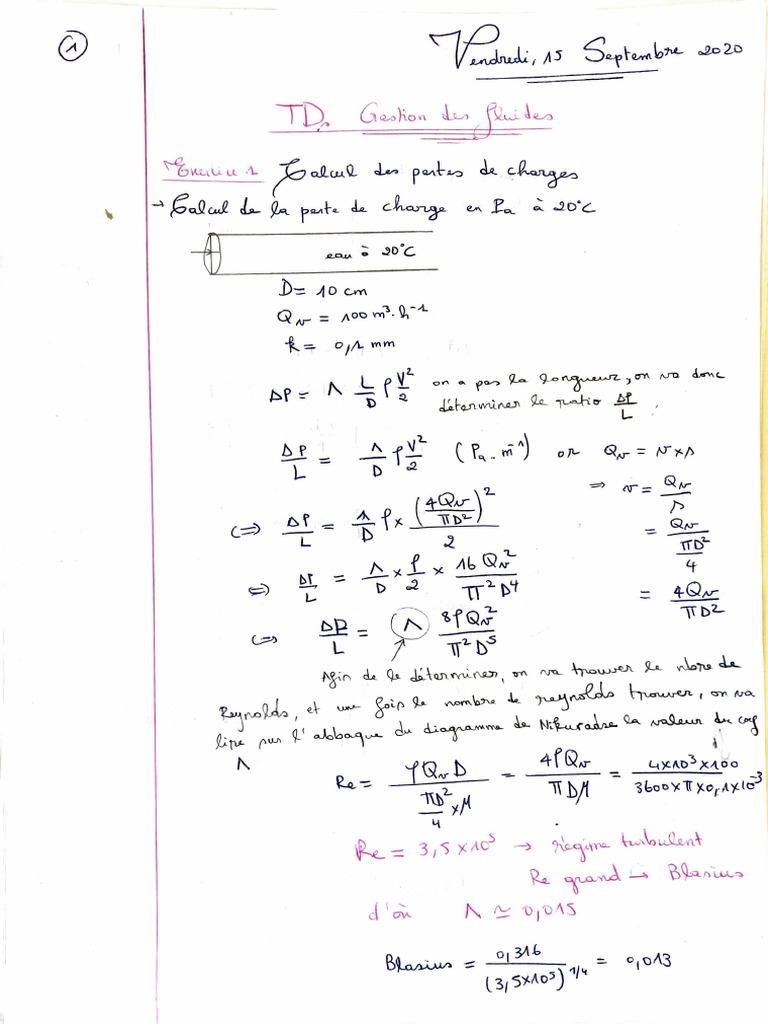 ①
Vendredi, 15 Septembre 2020
TD. Gestion des fluides
Exercice 1 Calcul des pertes de charges
→ Calcul de la perte de charge en Pa à 20°C
eau à 20°C
D = 10 cm
Qv = 100 m³.h⁻¹
k = 0,1 mm
ΔP = Λ L/D ρ V²/2 on a pas la longueur, on va donc
déterminer le ratio ΔP/L.
ΔP/L = Λ/D ρ V²/2 (Pa.m⁻¹) or Qv = v×s
⇒ v = Qv/s
⇔ ΔP/L = Λ/D ρ × (4Qv/ΠD²)²/2
= Qv/(ΠD²/4)
⇔ ΔP/L = Λ/D × ρ/2 × 16Qv²/Π²D⁴
= 4Qv/ΠD²
⇔ ΔP/L = Λ 8ρQv²/Π²D⁵
Afin de le déterminer, on va trouver le nbre de
Reynolds, et une fois le nombre de reynolds trouver, on va
lire sur l'abbaque du diagramme de Nikuradse la valeur du cof
Λ
Re = ρQvD/(ΠD²/4 × μ) = 4ρQv/ΠDμ = 4×10³×100/3600×Π×0,1×10⁻³
Re = 3,5×10⁵ → régime turbulent
Re grand → Blasius
d'où Λ ≃ 0,015
Blasius = 0,316/(3,5×10⁵)^1/4 = 0,013